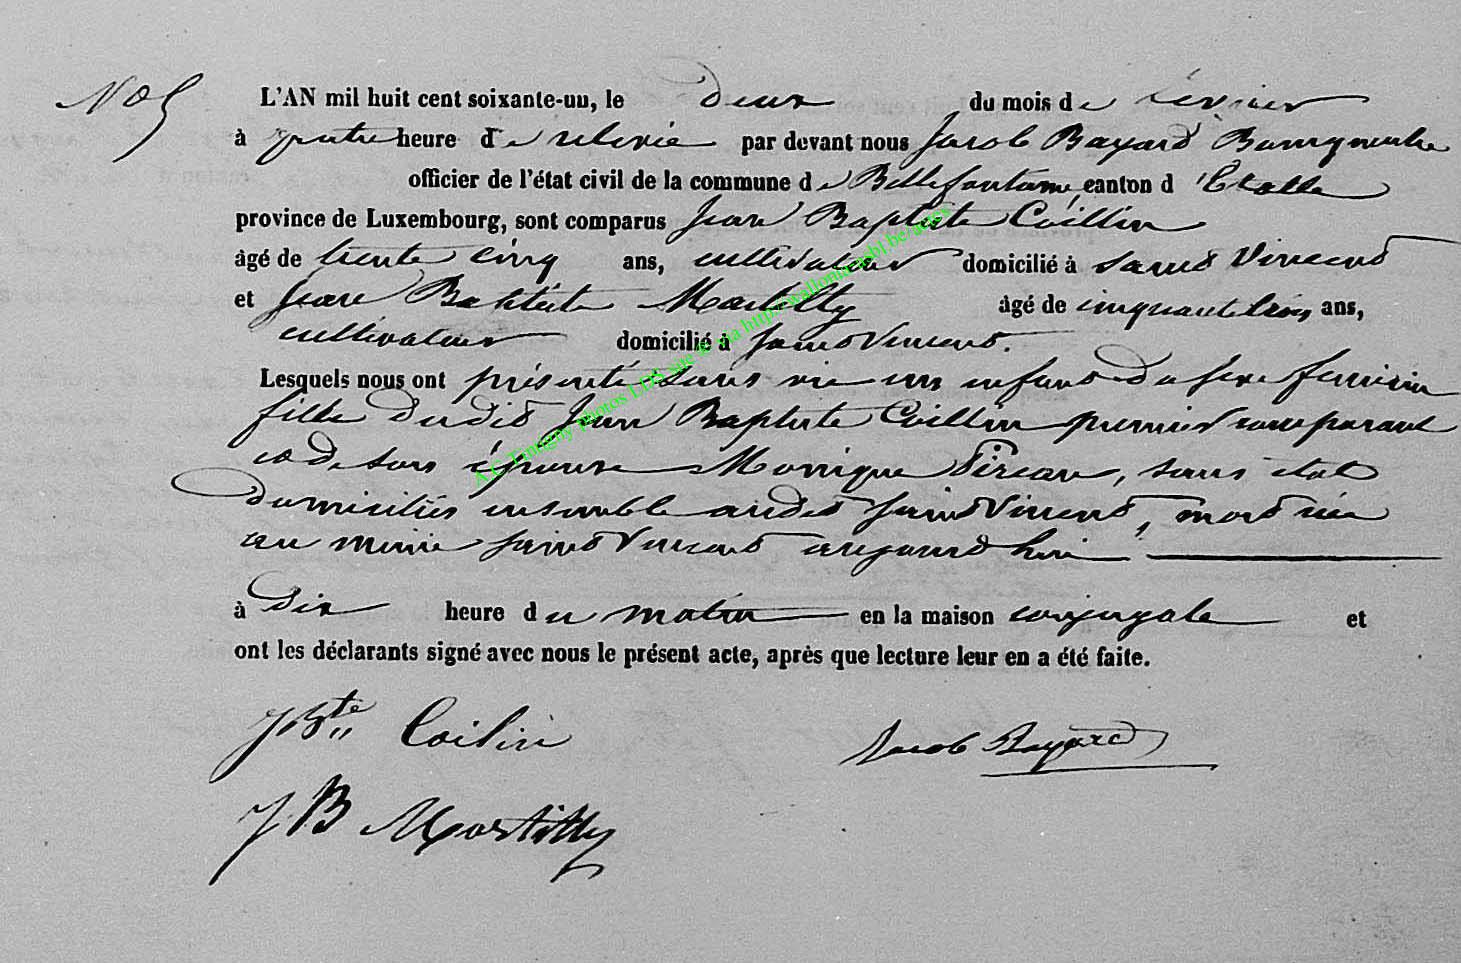 N° 5
L'AN mil huit cent soixante-un, le deux du mois de février
à quatre heure de relevée par devant nous Jacob Bayard Bourgmestre
officier de l'état civil de la commune de Bellefontaine canton d'Etalle
province de Luxembourg, sont comparus Jean Baptiste Coillin
âgé de trente cinq ans, cultivateur domicilié à Saint Vincent
et Jean Baptiste Mastilly âgé de cinquante trois ans,
cultivateur domicilié à Saint Vincent.
Lesquels nous ont présenté sans vie un enfant du sexe féminin
fille dudit Jean Baptiste Coillin premier comparant
et de son épouse Monique Pireaux, sans état
domiciliés ensemble audit Saint Vincent, mort née
au même Saint Vincent aujourd'hui
à dix heure du matin en la maison conjugale et
ont les déclarants signé avec nous le présent acte, après que lecture leur en a été faite.
JBte Coilin Jacob Bayard
JB Mastilly
A.G. Tintigny photos LDS site de via http://wallonia-asbl.be/actes